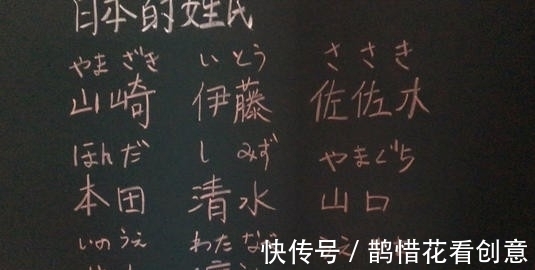 日本的姓氏
やまざき いとう ささき
山崎 伊藤 佐佐木
ほんだ しみず やまぐち
本田 清水 山口
いのうえ わたな
快传号 / 鹊惜花看创意